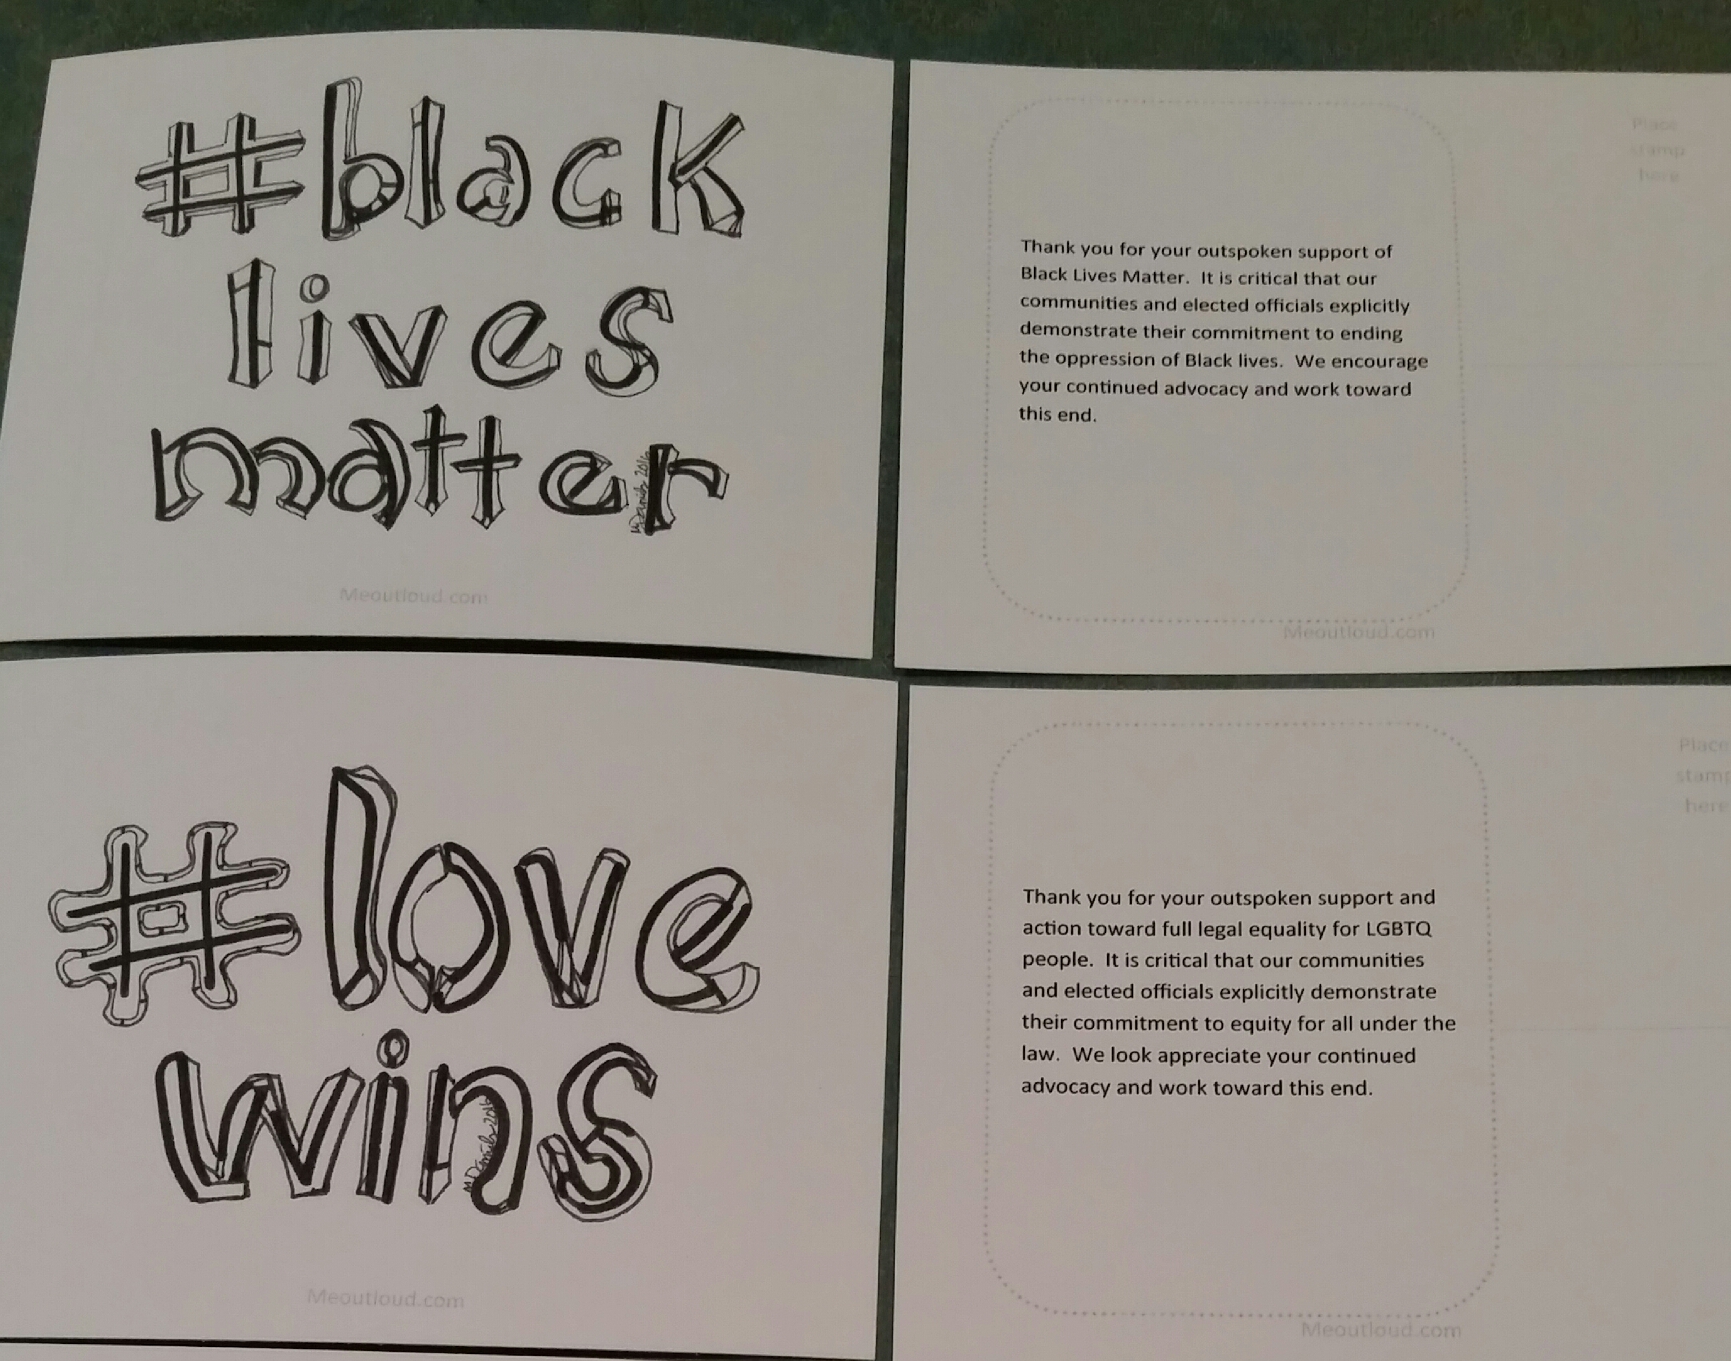 #black
lives
matter
2016
Meoutloud.com
Place
stamp
here
Thank you for your outspoken support of
Black Lives Matter.  It is critical that our
communities and elected officials explicitly
demonstrate their commitment to ending
the oppression of Black lives.  We encourage
your continued advocacy and work toward
this end.
Meoutloud.com
#love
wins
2016
Meoutloud.com
Place
stamp
here
Thank you for your outspoken support and
action toward full legal equality for LGBTQ
people.  It is critical that our communities
and elected officials explicitly demonstrate
their commitment to equity for all under the
law.  We look appreciate your continued
advocacy and work toward this end.
Meoutloud.com